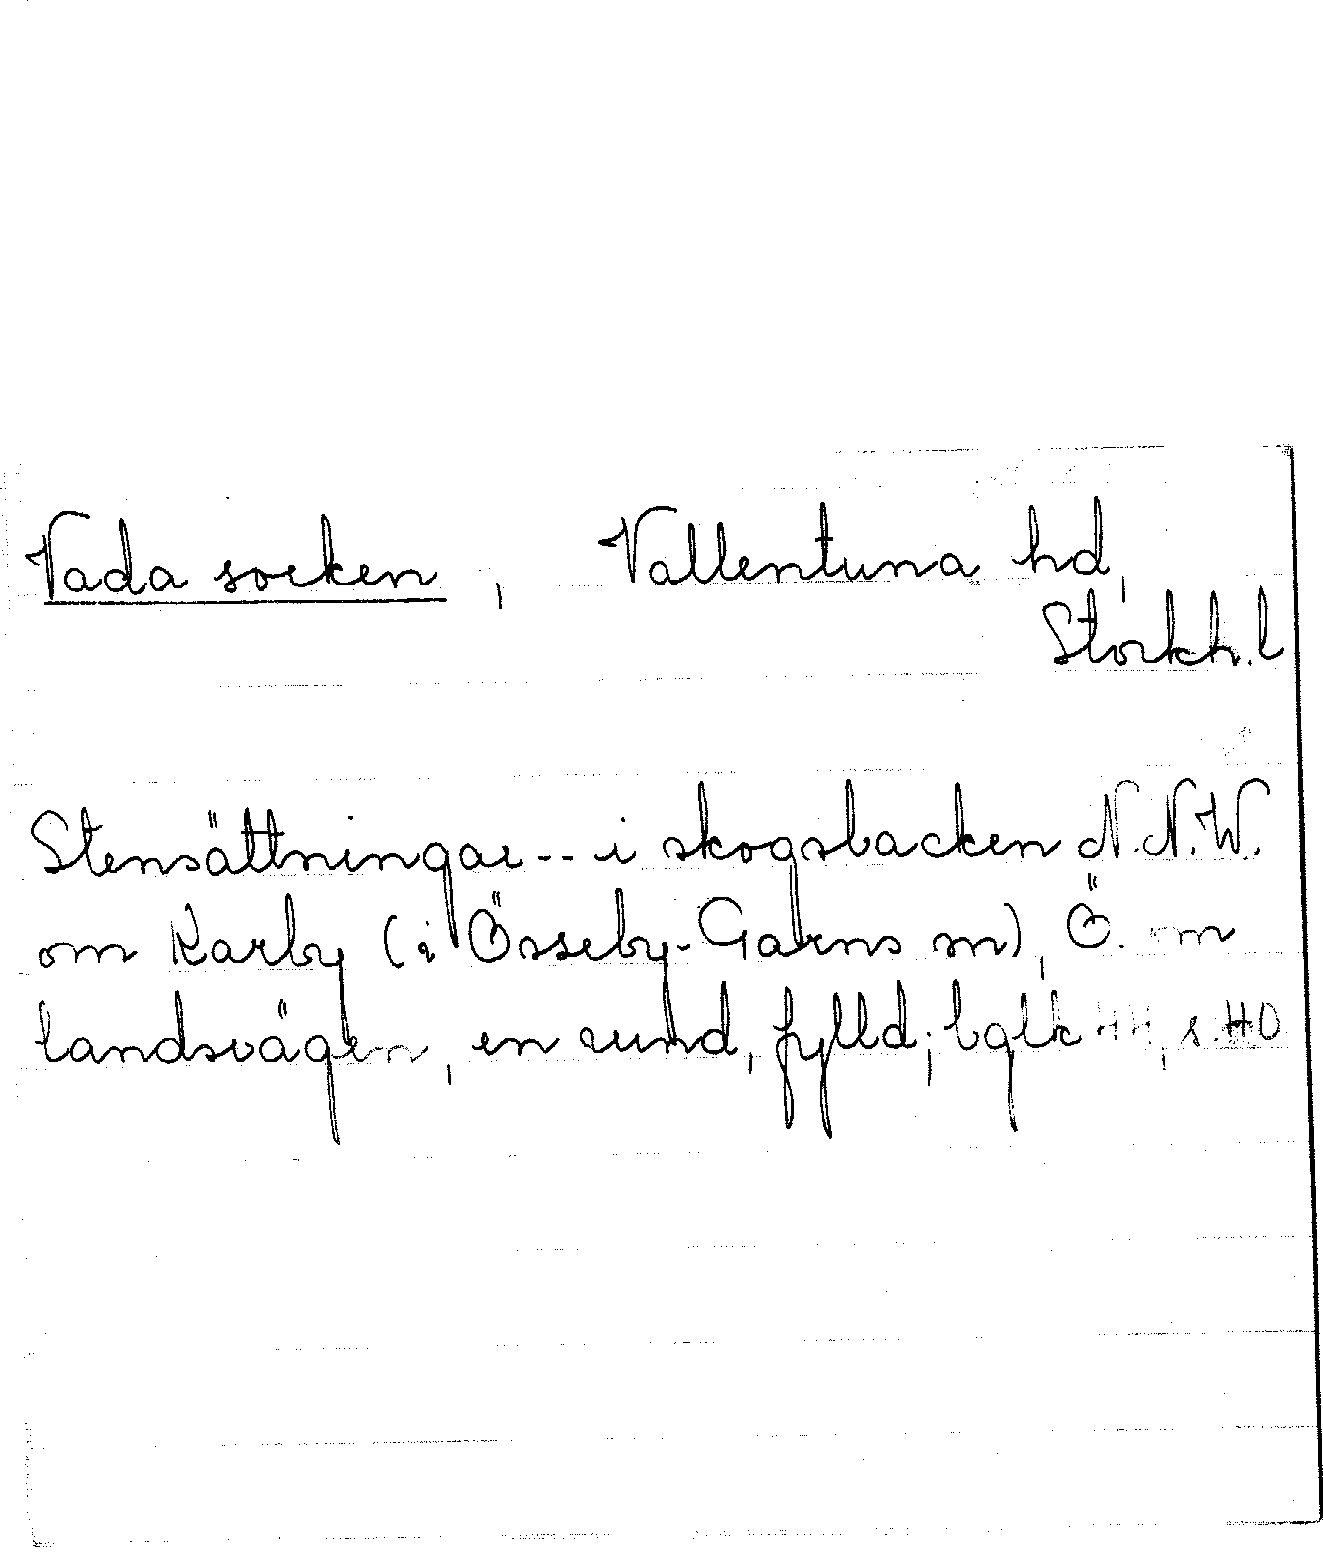 Vada socken, Vallentuna hd,
Stockh. l
Stensättningar -- i skogsbacken N.N.W.
om Karby (i Össeby-Garns sn), Ö. om
landsvägen, en rund, fylld; bglk 44, s. 40